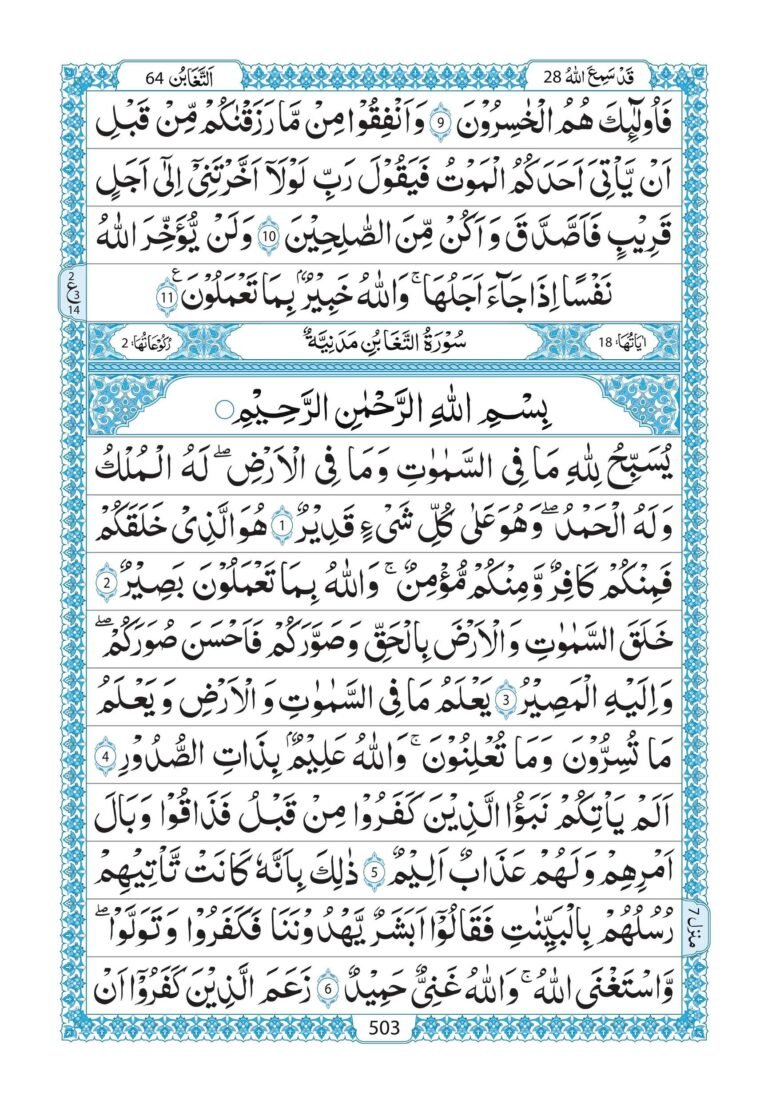 قَدْ سَمِعَ اللّٰهُ 28
اَلتَّغَابُن 64
فَاُولٰٓئِكَ هُمُ الْخٰسِرُوْنَ 9 وَاَنْفِقُوْا مِنْ مَّا رَزَقْنٰكُمْ مِّنْ قَبْلِ
اَنْ يَّاْتِيَ اَحَدَكُمُ الْمَوْتُ فَيَقُوْلَ رَبِّ لَوْلَاۤ اَخَّرْتَنِيْۤ اِلٰۤى اَجَلٍ
قَرِيْبٍ فَاَصَّدَّقَ وَاَكُنْ مِّنَ الصّٰلِحِيْنَ 10 وَلَنْ يُّؤَخِّرَ اللّٰهُ
نَفْسًا اِذَا جَآءَ اَجَلُهَا ۚ وَاللّٰهُ خَبِيْرٌۢ بِمَا تَعْمَلُوْنَ 11
2
ع
3
14
اٰيَاتُهَا: 18
سُوْرَةُ التَّغَابُنِ مَدَنِيَّةٌ
رُكُوْعَاتُهَا: 2
بِسْمِ اللّٰهِ الرَّحْمٰنِ الرَّحِيْمِ
يُسَبِّحُ لِلّٰهِ مَا فِي السَّمٰوٰتِ وَمَا فِي الْاَرْضِ ۖ لَهُ الْمُلْكُ
وَلَهُ الْحَمْدُ ۖ وَهُوَ عَلٰى كُلِّ شَيْءٍ قَدِيْرٌ 1 هُوَ الَّذِيْ خَلَقَكُمْ
فَمِنْكُمْ كَافِرٌ وَّمِنْكُمْ مُّؤْمِنٌ ۚ وَاللّٰهُ بِمَا تَعْمَلُوْنَ بَصِيْرٌ 2
خَلَقَ السَّمٰوٰتِ وَالْاَرْضَ بِالْحَقِّ وَصَوَّرَكُمْ فَاَحْسَنَ صُوَرَكُمْ ۖ
وَاِلَيْهِ الْمَصِيْرُ 3 يَعْلَمُ مَا فِي السَّمٰوٰتِ وَالْاَرْضِ وَيَعْلَمُ
مَا تُسِرُّوْنَ وَمَا تُعْلِنُوْنَ ۚ وَاللّٰهُ عَلِيْمٌۢ بِذَاتِ الصُّدُوْرِ 4
اَلَمْ يَاْتِكُمْ نَبَؤُا الَّذِيْنَ كَفَرُوْا مِنْ قَبْلُ فَذَاقُوْا وَبَالَ
اَمْرِهِمْ وَلَهُمْ عَذَابٌ اَلِيْمٌ 5 ذٰلِكَ بِاَنَّهٗ كَانَتْ تَّاْتِيْهِمْ
رُسُلُهُمْ بِالْبَيِّنٰتِ فَقَالُوْۤا اَبَشَرٌ يَّهْدُوْنَنَا فَكَفَرُوْا وَتَوَلَّوْا ۖ
وَّاسْتَغْنَى اللّٰهُ ۚ وَاللّٰهُ غَنِيٌّ حَمِيْدٌ 6 زَعَمَ الَّذِيْنَ كَفَرُوْۤا اَنْ
منزل 7
503